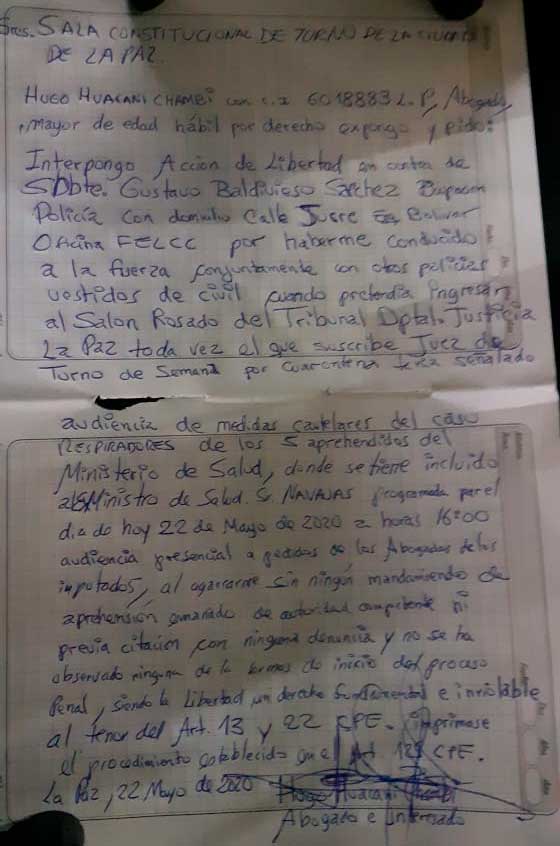 Sres. SALA CONSTITUCIONAL DE TURNO DE LA CIUDAD
DE LA PAZ.
HUGO HUACANI CHAMBI con c.i. 6018883 L.P, Abogado,
mayor de edad hábil por derecho expongo y pido:
Interpongo Acción de Libertad en contra de
Sbbte. Gustavo Baldivieso Sarchez
Policía con domicilio Calle Sucre Bolivar
Oficina FELCC por haberme conducido
a la fuerza conjuntamente con otros policias
vestidos de civil cuando pretendia ingresar
al Salon Rosado del Tribunal Dptal. Justicia
La Paz toda vez el que suscribe Juez de
Turno de Semana por cuarentena señalado
audiencia de medidas cautelares del caso
RESPIRADORES de los 5 aprehendidos del
Ministerio de Salud, donde se tiene incluido
Ministro de Salud. Sr. NAVAJAS programada par el
dia de hoy 22 de Mayo de 2020 a horas 16:00
audiencia presencial a pedidos de los Abogados de los
imputados, al agarrarme sin ningún mandamiendo de
aprehensión emanado de autoridad competente ni
previa citación con ninguna denuncia y no se ha
observado ninguna de la formas de inicio del proceso
Penal, siendo la Libertad un derecho fundamental e inviolable
al tenor del Art. 13 y 22 CPE. imprimase
el procedimiento establecido en el Art. 125 CPE.
La Paz, 22 Mayo de 2020 Hugo Huacani
Abogado e Interesado